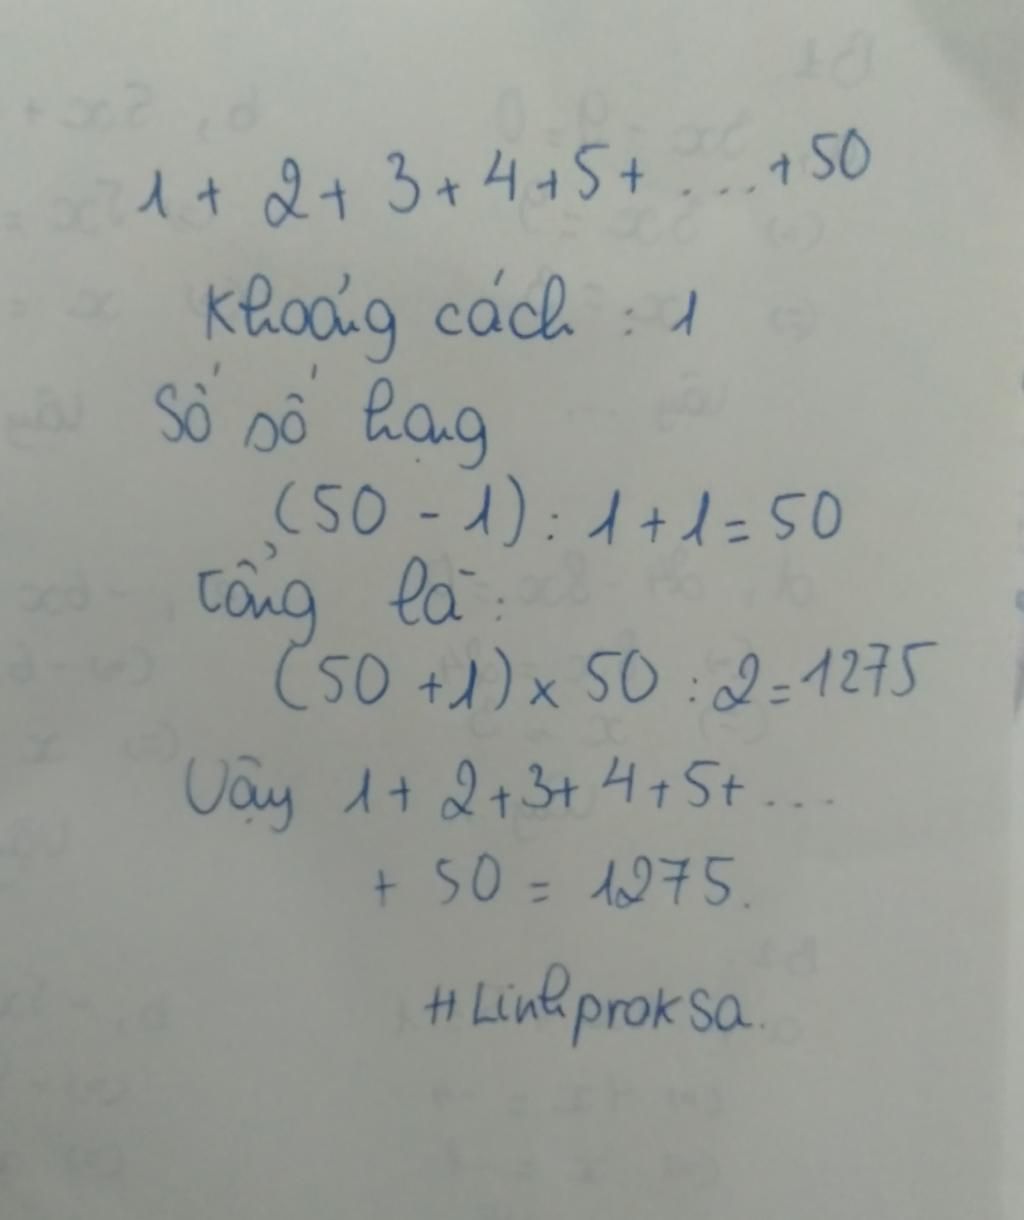 1 + 2 + 3 + 4 + 5 + ... + 50
Khoảng cách : 1
Số số hạng
(50 - 1) : 1 + 1 = 50
Tổng là :
(50 + 1) x 50 : 2 = 1275
Vậy 1 + 2 + 3 + 4 + 5 + ...
+ 50 = 1275.
#Linhproksa.